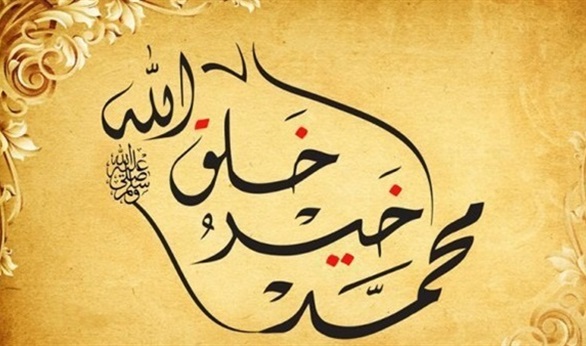 محمد
خير
خلق
الله
صلى الله عليه وسلم